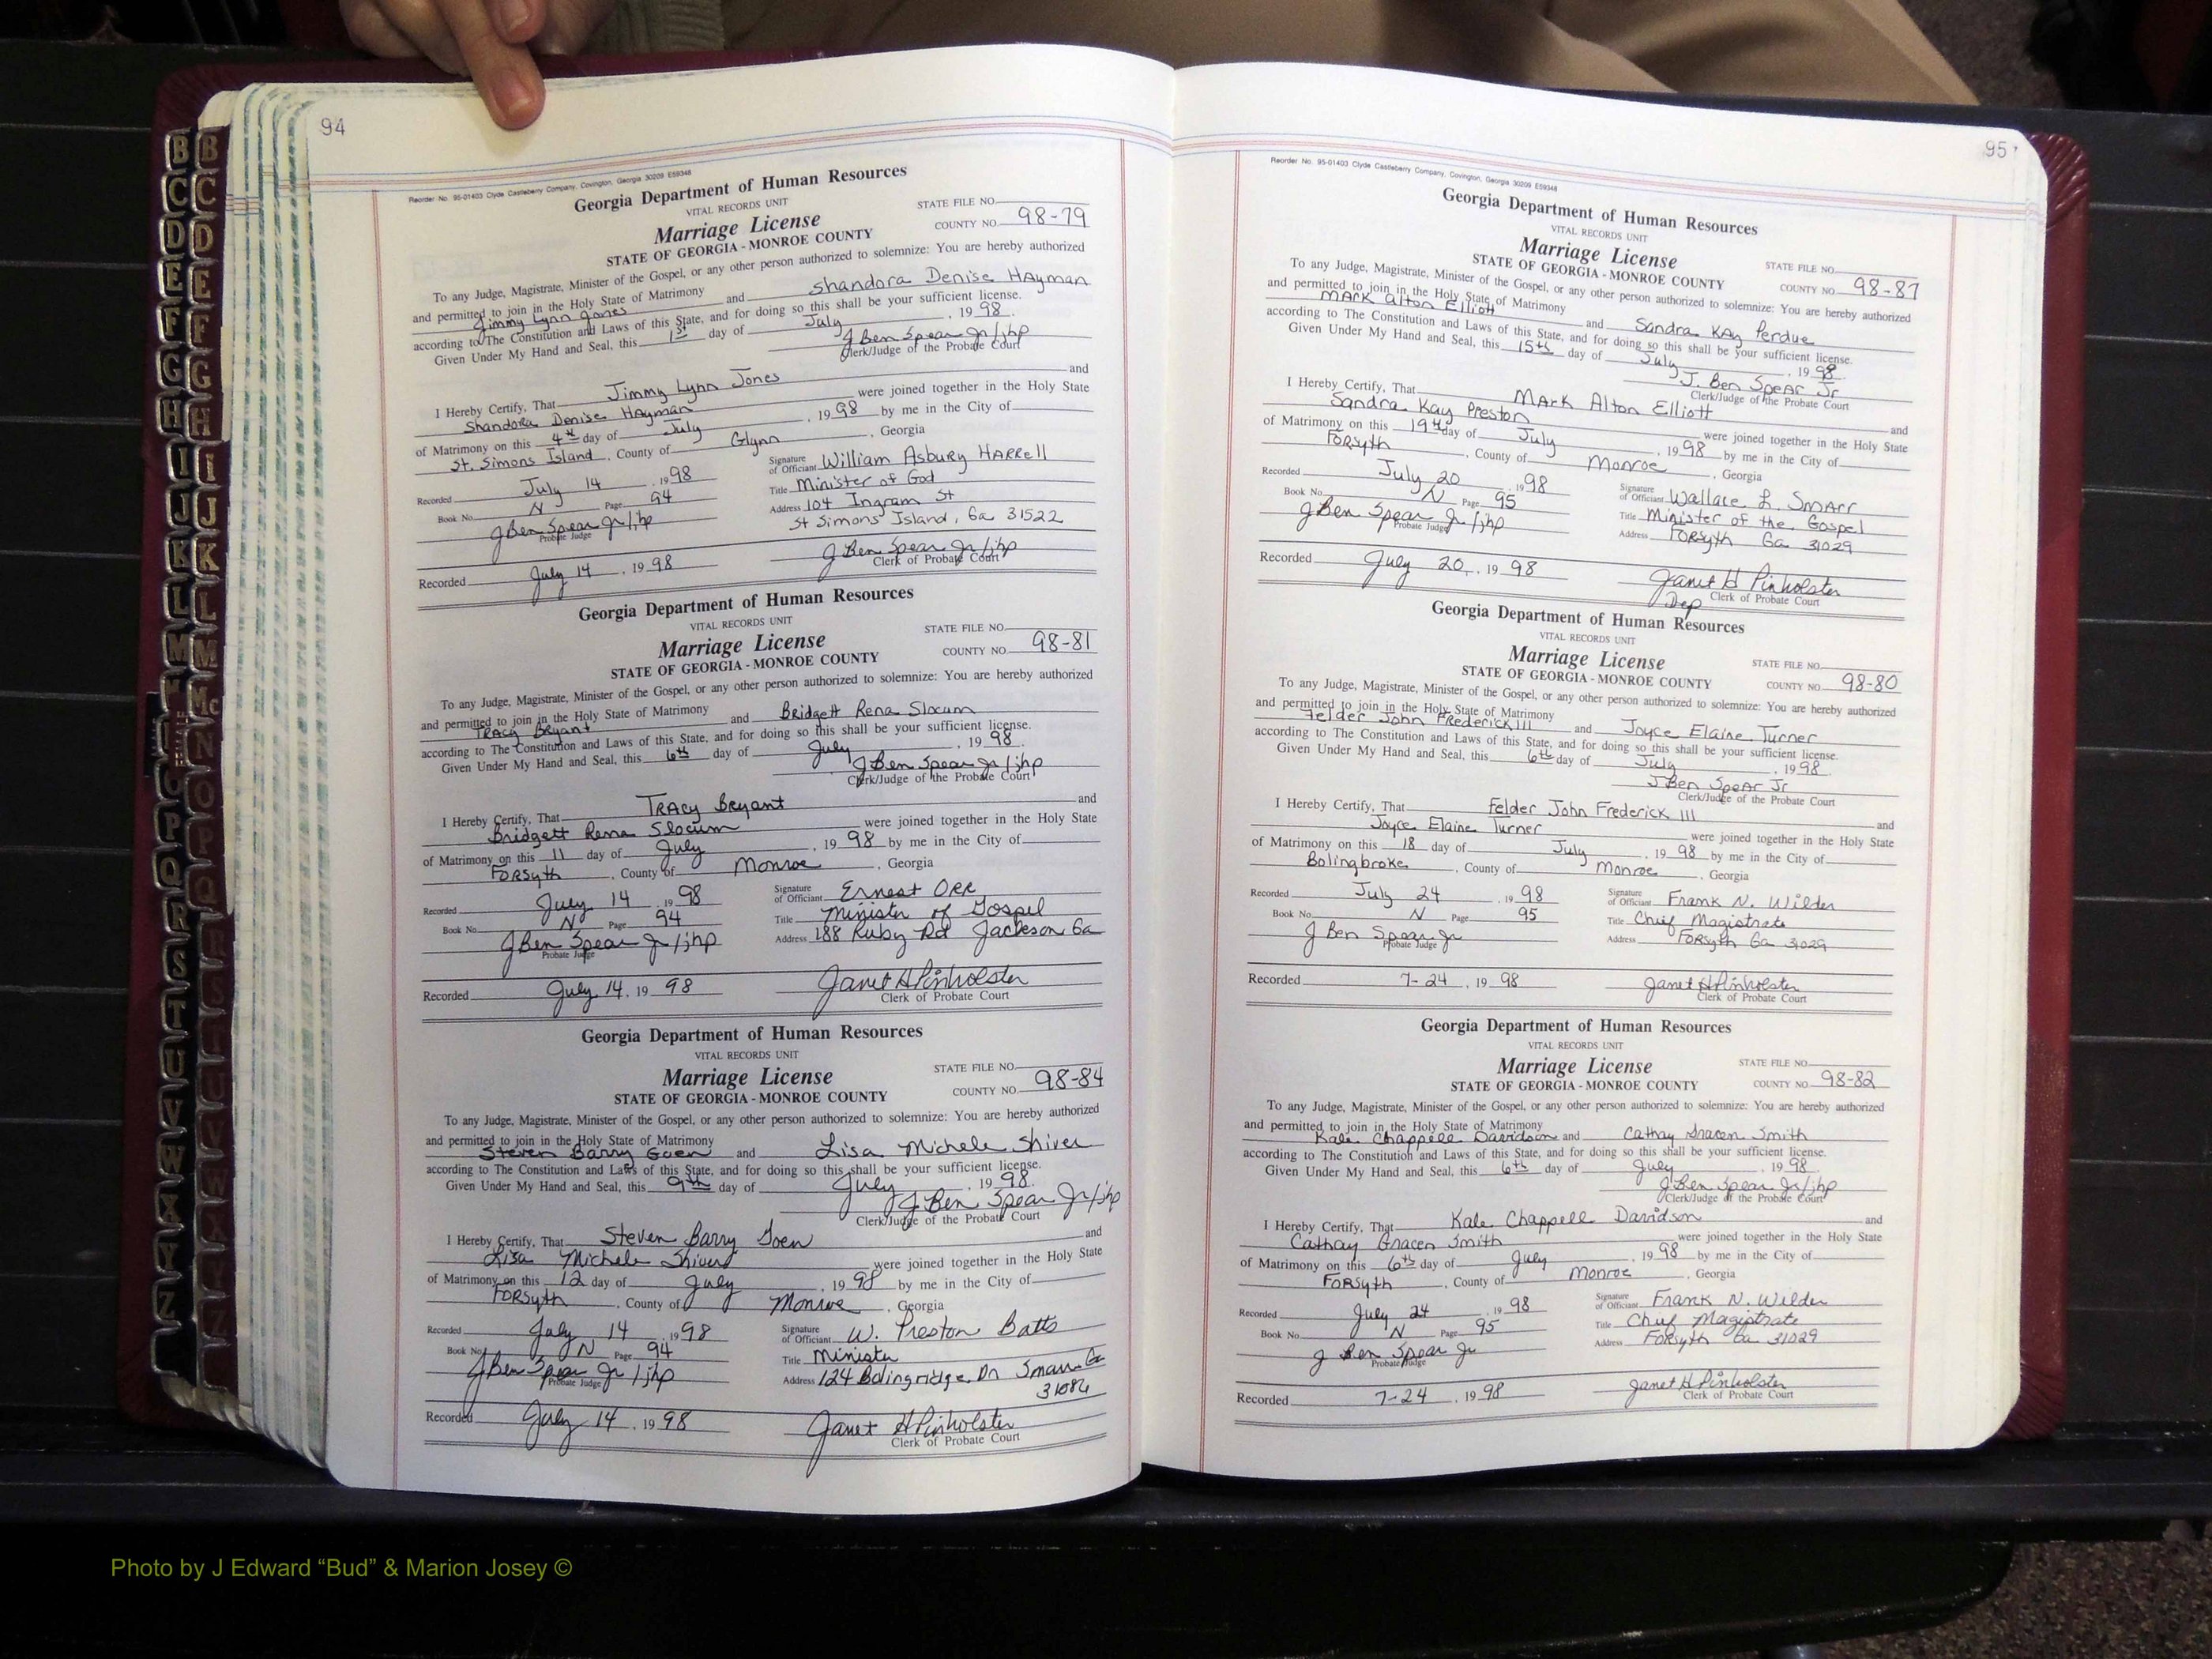 94
Reorder No. 95-01403 Clyde Castleberry Company, Covington, Georgia 30209 E59348
Georgia Department of Human Resources
VITAL RECORDS UNIT
STATE FILE NO.
Marriage License
COUNTY NO. 98-79
STATE OF GEORGIA - MONROE COUNTY
To any Judge, Magistrate, Minister of the Gospel, or any other person authorized to solemnize: You are hereby authorized
and permitted to join in the Holy State of Matrimony
Jimmy Lynn Jones and Shandora Denise Hayman
according to The Constitution and Laws of this State, and for doing so this shall be your sufficient license.
Given Under My Hand and Seal, this 1st day of July, 1998.
J Ben Spear Jr/jhp
Clerk/Judge of the Probate Court
I Hereby Certify, That Jimmy Lynn Jones and
Shandora Denise Hayman were joined together in the Holy State
of Matrimony on this 4th day of July, 1998 by me in the City of
St. Simons Island, County of Glynn, Georgia
Recorded July 14 1998
Signature of Officiant William Asbury Harrell
Book No. N Page 94
Title Minister of God
J Ben Spear Jr/jhp
Probate Judge
Address 104 Ingram St
St Simons Island, Ga 31522
Recorded July 14, 1998
J Ben Spear Jr/jhp
Clerk of Probate Court
Georgia Department of Human Resources
VITAL RECORDS UNIT
STATE FILE NO.
Marriage License
COUNTY NO. 98-81
STATE OF GEORGIA - MONROE COUNTY
To any Judge, Magistrate, Minister of the Gospel, or any other person authorized to solemnize: You are hereby authorized
and permitted to join in the Holy State of Matrimony
Tracy Bryant and Bridgett Rena Slocum
according to The Constitution and Laws of this State, and for doing so this shall be your sufficient license.
Given Under My Hand and Seal, this 6th day of July, 1998.
J Ben Spear Jr/jhp
Clerk/Judge of the Probate Court
I Hereby Certify, That Tracy Bryant and
Bridgett Rena Slocum were joined together in the Holy State
of Matrimony on this 11 day of July, 1998 by me in the City of
Forsyth, County of Monroe, Georgia
Recorded July 14 1998
Signature of Officiant Ernest Orr
Book No. N Page 94
Title Minister of Gospel
J Ben Spear Jr/jhp
Probate Judge
Address 188 Ruby Rd Jackson Ga
Recorded July 14, 1998
Janet H Pinholster
Clerk of Probate Court
Georgia Department of Human Resources
VITAL RECORDS UNIT
STATE FILE NO.
Marriage License
COUNTY NO. 98-84
STATE OF GEORGIA - MONROE COUNTY
To any Judge, Magistrate, Minister of the Gospel, or any other person authorized to solemnize: You are hereby authorized
and permitted to join in the Holy State of Matrimony
Steven Barry Goen and Lisa Michele Shiver
according to The Constitution and Laws of this State, and for doing so this shall be your sufficient license.
Given Under My Hand and Seal, this 9th day of July, 1998.
J Ben Spear Jr/jhp
Clerk/Judge of the Probate Court
I Hereby Certify, That Steven Barry Goen and
Lisa Michele Shiver were joined together in the Holy State
of Matrimony on this 12 day of July, 1998 by me in the City of
Forsyth, County of Monroe, Georgia
Recorded July 14 1998
Signature of Officiant W. Preston Batts
Book No. N Page 94
Title Minister
J Ben Spear Jr/jhp
Probate Judge
Address 124 Bolingridge Dr Smarr Ga
31086
Recorded July 14, 1998
Janet H Pinholster
Clerk of Probate Court
95
Reorder No. 95-01403 Clyde Castleberry Company, Covington, Georgia 30209 E59348
Georgia Department of Human Resources
VITAL RECORDS UNIT
Marriage License
STATE FILE NO.
STATE OF GEORGIA - MONROE COUNTY
COUNTY NO. 98-87
To any Judge, Magistrate, Minister of the Gospel, or any other person authorized to solemnize: You are hereby authorized
and permitted to join in the Holy State of Matrimony
Mark Alton Elliott and Sandra Kay Perdue
according to The Constitution and Laws of this State, and for doing so this shall be your sufficient license.
Given Under My Hand and Seal, this 15th day of July, 1998.
J. Ben Spear Jr
Clerk/Judge of the Probate Court
I Hereby Certify, That Mark Alton Elliott and
Sandra Kay Preston were joined together in the Holy State
of Matrimony on this 19th day of July, 1998 by me in the City of
Forsyth, County of Monroe, Georgia
Recorded July 20 1998
Signature of Officiant Wallace L. Smarr
Book No. N Page 95
Title Minister of the Gospel
J Ben Spear Jr/jhp
Probate Judge
Address Forsyth Ga 31029
Recorded July 20, 1998
Janet H Pinholster
Dep Clerk of Probate Court
Georgia Department of Human Resources
VITAL RECORDS UNIT
Marriage License
STATE FILE NO.
STATE OF GEORGIA - MONROE COUNTY
COUNTY NO. 98-80
To any Judge, Magistrate, Minister of the Gospel, or any other person authorized to solemnize: You are hereby authorized
and permitted to join in the Holy State of Matrimony
Felder John Frederick III and Joyce Elaine Turner
according to The Constitution and Laws of this State, and for doing so this shall be your sufficient license.
Given Under My Hand and Seal, this 6th day of July, 1998.
J Ben Spear Jr
Clerk/Judge of the Probate Court
I Hereby Certify, That Felder John Frederick III and
Joyce Elaine Turner were joined together in the Holy State
of Matrimony on this 18 day of July, 1998 by me in the City of
Bolingbroke, County of Monroe, Georgia
Recorded July 24, 1998
Signature of Officiant Frank N. Wilder
Book No. N Page 95
Title Chief Magistrate
J Ben Spear Jr
Probate Judge
Address Forsyth Ga 31029
Recorded 7-24, 1998
Janet H Pinholster
Clerk of Probate Court
Georgia Department of Human Resources
VITAL RECORDS UNIT
Marriage License
STATE FILE NO.
STATE OF GEORGIA - MONROE COUNTY
COUNTY NO. 98-82
To any Judge, Magistrate, Minister of the Gospel, or any other person authorized to solemnize: You are hereby authorized
and permitted to join in the Holy State of Matrimony
Kale Chappell Davidson and Cathay Gracen Smith
according to The Constitution and Laws of this State, and for doing so this shall be your sufficient license.
Given Under My Hand and Seal, this 6th day of July, 1998.
J Ben Spear Jr/jhp
Clerk/Judge of the Probate Court
I Hereby Certify, That Kale Chappell Davidson and
Cathay Gracen Smith were joined together in the Holy State
of Matrimony on this 6th day of July, 1998 by me in the City of
Forsyth, County of Monroe, Georgia
Recorded July 24, 1998
Signature of Officiant Frank N. Wilder
Book No. N Page 95
Title Chief Magistrate
J Ben Spear Jr
Probate Judge
Address Forsyth Ga 31029
Recorded 7-24, 1998
Janet H Pinholster
Clerk of Probate Court
Photo by J Edward “Bud” & Marion Josey ©